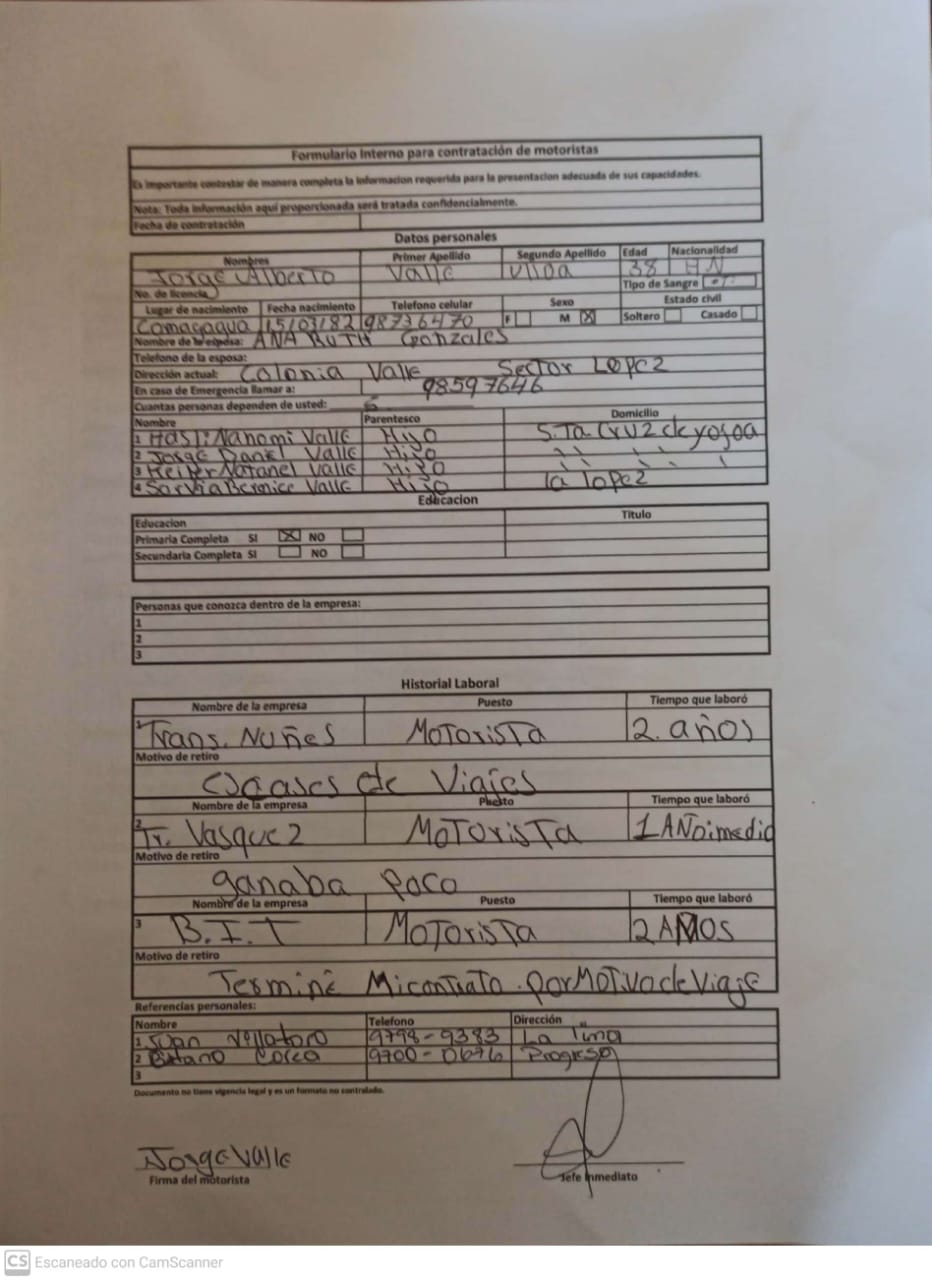 Formulario Interno para contratación de motoristas
Es importante contestar de manera completa la informacion requerida para la presentacion adecuada de sus capacidades.
Nota: Toda información aquí proporcionada será tratada confidencialmente.
Fecha de contratación
Datos personales
Nombres Primer Apellido Segundo Apellido Edad Nacionalidad
Jorge Alberto Valle Ulloa 38 HN
No. de licencia Tipo de Sangre
Lugar de nacimiento Fecha nacimiento Telefono celular Sexo Estado civil
Comagagua 15/03/82 98736470 F M X Soltero Casado
Nombre de la esposa: ANA RUTH Gonzales
Telefono de la esposa:
Dirección actual: Colonia Valle Sector LOPez
En caso de Emergencia llamar a: 98597646
Cuantas personas dependen de usted:
Nombre Parentesco Domicilio
1 Nahomi Valle Hijo S.Ta Cruz de yojoa
2 Jorge Daniel Valle Hijo
3 Natanel Valle Hijo
4 Valle Hijo la lopez
Educacion
Educacion Titulo
Primaria Completa SI X NO
Secundaria Completa SI NO
Personas que conozca dentro de la empresa:
1
2
3
Historial Laboral
Nombre de la empresa Puesto Tiempo que laboró
1 Trans. Nuñes MoTorisTa 2. años
Motivo de retiro
de Viajes
Nombre de la empresa Puesto Tiempo que laboró
2 Tr. Vasquez MoTorisTa 1 AÑoimedio
Motivo de retiro
ganaba poco
Nombre de la empresa Puesto Tiempo que laboró
3 B.I.T MoTorisTa 2 AÑOS
Motivo de retiro
Terminé Micontrato. porMoTivodeViaje
Referencias personales:
Nombre Telefono Dirección
1 Juan 9798-9383 La lima
2 9700-0676 Progreso
3
Documento no tiene vigencia legal y es un formato no controlado.
Jorge Valle
Firma del motorista Jefe Inmediato
CS Escaneado con CamScanner